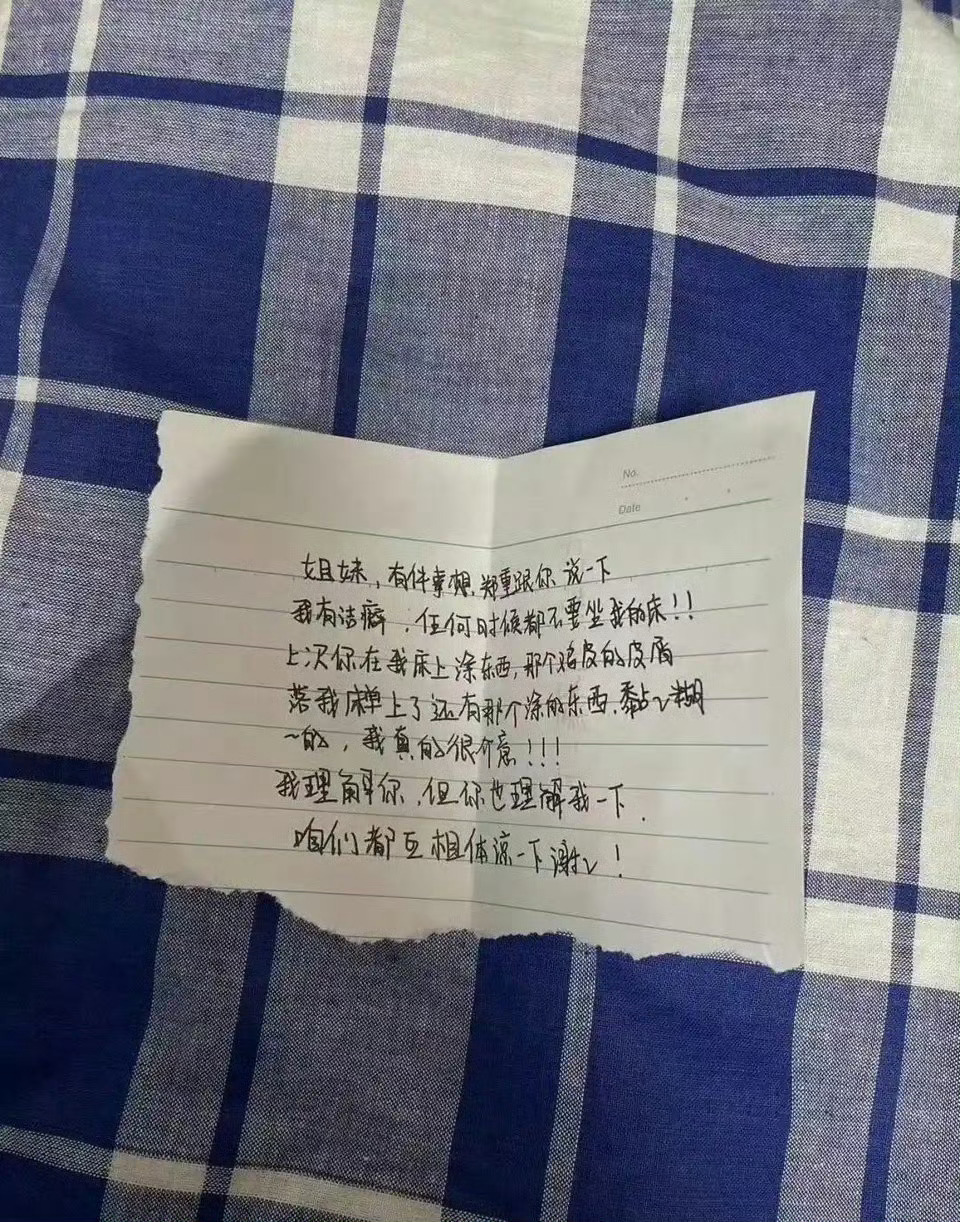 No.
Date
姐妹，有件事想郑重跟你说一下
我有洁癖，任何时候都不要坐我的床！！
上次你在我床上涂东西，那个鸡皮的皮屑
落我床单上了还有那个涂的东西，黏~糊
~的，我真的很介意！！！
我理解你，但你也理解我一下．
咱们都互相体谅一下谢~！